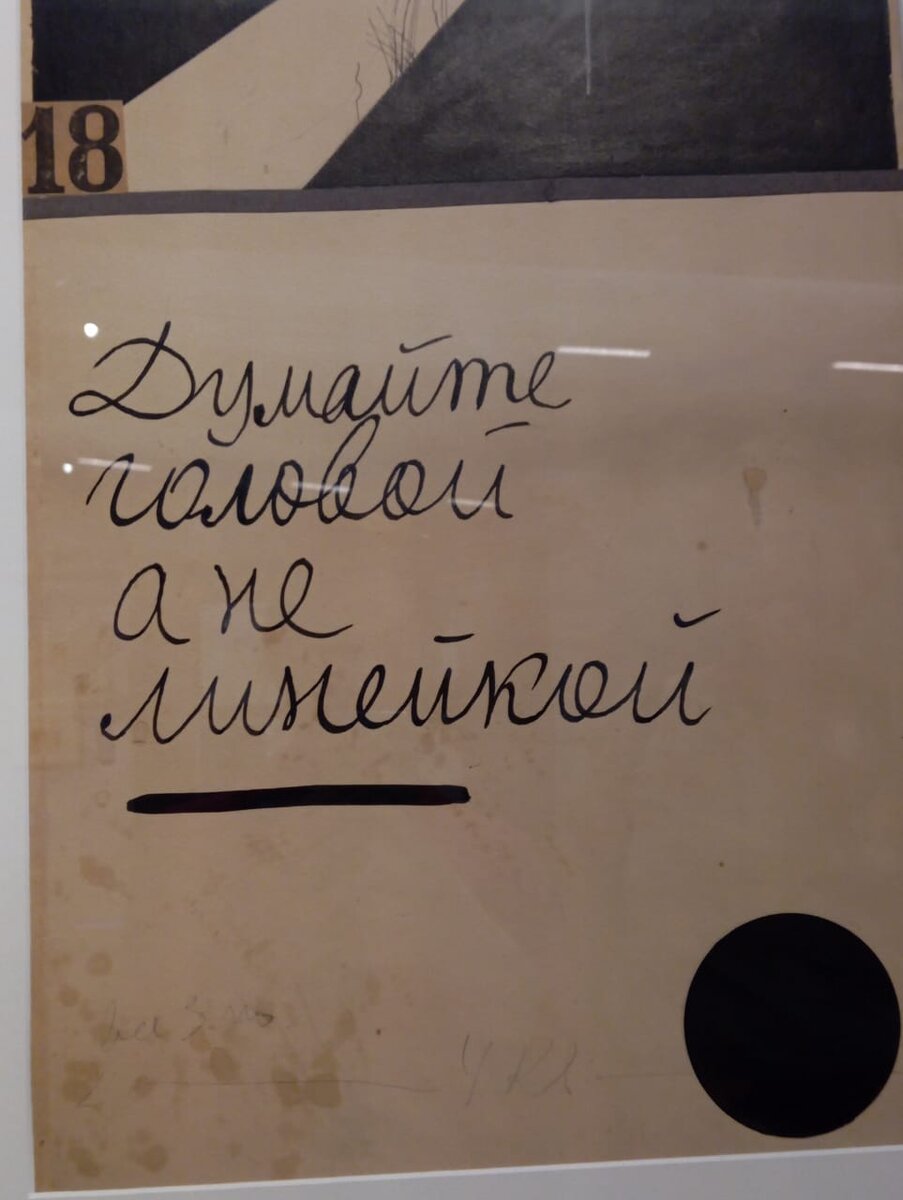 18
Думайте
головой
а не
линейкой